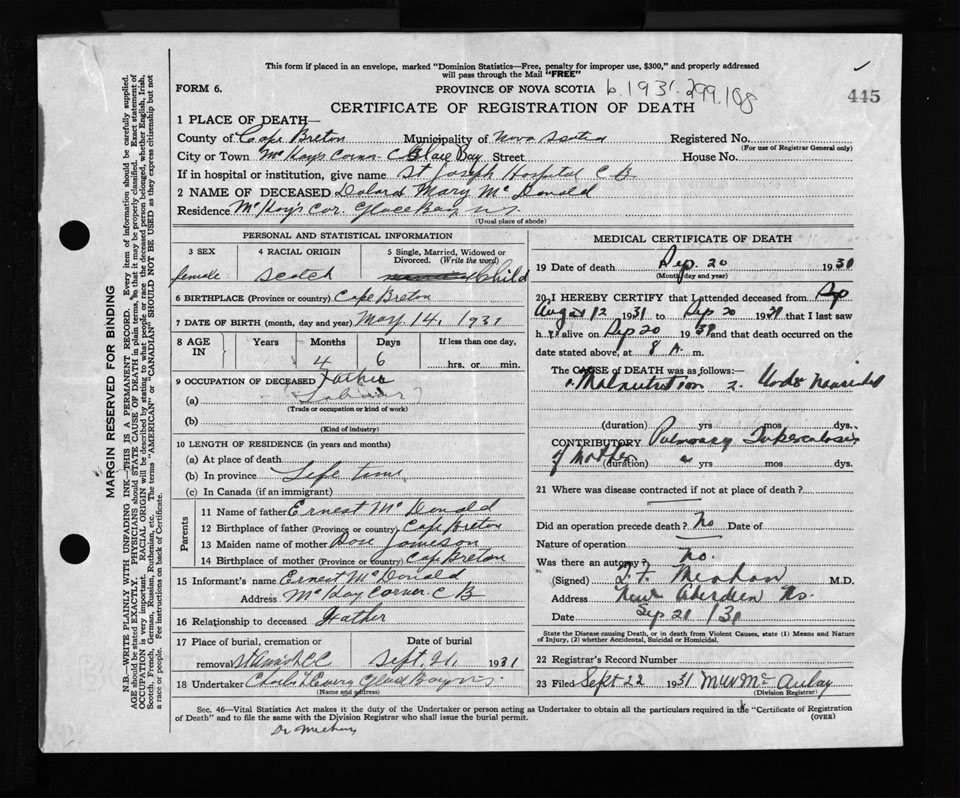 This form if placed in an envelope, marked "Dominion Statistics—Free, penalty for improper use, $300," and properly addressed
will pass through the Mail "FREE"
FORM 6. PROVINCE OF NOVA SCOTIA b.1931.299.108
445
CERTIFICATE OF REGISTRATION OF DEATH
1 PLACE OF DEATH—
County of Cape Breton Municipality of Nova Scotia Registered No.
(For use of Registrar General only)
City or Town McKays Corner Glace Bay Street House No.
If in hospital or institution, give name St Joseph Hospital C B.
2 NAME OF DECEASED Mary McDonald
Residence McKay's Cor. Glace Bay N.S.
(Usual place of abode)
PERSONAL AND STATISTICAL INFORMATION
3 SEX 4 RACIAL ORIGIN 5 Single, Married, Widowed or
Divorced. (Write the word)
female scotch Child
6 BIRTHPLACE (Province or country) Cape Breton
7 DATE OF BIRTH (month, day and year) May 14, 1931
8 AGE IN Years Months Days If less than one day,
4 6 hrs. or min.
9 OCCUPATION OF DECEASED Father
(a) Labour
(Trade or occupation or kind of work)
(b)
(Kind of industry)
10 LENGTH OF RESIDENCE (in years and months)
(a) At place of death
(b) In province Life time
(c) In Canada (if an immigrant)
Parents
11 Name of father Ernest McDonald
12 Birthplace of father (Province or country) Cape Breton
13 Maiden name of mother Rose Jameson
14 Birthplace of mother (Province or country) Cape Breton
15 Informant's name Ernest McDonald
Address McKay Corner. C B
16 Relationship to deceased Father
17 Place of burial, cremation or Date of burial
removal Sept. 21, 1931
18 Undertaker Glace Bay N.S.
(Name and address)
MEDICAL CERTIFICATE OF DEATH
19 Date of death Sep. 20 1931
(Month, day and year)
20 I HEREBY CERTIFY that I attended deceased from Sep
August 12 1931 to Sep 20 1931 that I last saw
h alive on Sep 20 1931 and that death occurred on
the date stated above, at 8 A. m.
The CAUSE OF DEATH was as follows:—
1. Malnutrition 2.
(duration) yrs mos dys.
CONTRIBUTORY Pulmonary Tuberculosis
of Mother
(duration) yrs mos dys.
21 Where was disease contracted if not at place of death?
Did an operation precede death? No Date of
Nature of operation
Was there an autopsy? No.
(Signed) M.D.
Address New Aberdeen N.S.
Date Sep 21/31
State the Disease causing Death, or in death from Violent Causes, state (1) Means and Nature
of Injury, (2) whether Accidental, Suicidal or Homicidal.
22 Registrar's Record Number
23 Filed Sept 22 1931
(Division Registrar)
Sec. 46—Vital Statistics Act makes it the duty of the Undertaker or person acting as Undertaker to obtain all the particulars required in the "Certificate of Registration
of Death" and to file the same with the Division Registrar who shall issue the burial permit.
(OVER)
MARGIN RESERVED FOR BINDING
N.B.—WRITE PLAINLY WITH UNFADING INK—THIS IS A PERMANENT RECORD. Every item of information should be carefully supplied.
AGE should be stated EXACTLY. PHYSICIANS should STATE CAUSE OF DEATH in plain terms, so that it may be properly classified. Exact statement of
OCCUPATION is very important. RACIAL ORIGIN will be described by stating to what people or race the deceased person belonged, whether English, Irish,
Scotch, French, German, Russian, Ruthenian, etc. The terms "AMERICAN" or "CANADIAN" SHOULD NOT BE USED as they express citizenship but not
a race or people. See instructions on back of Certificate.